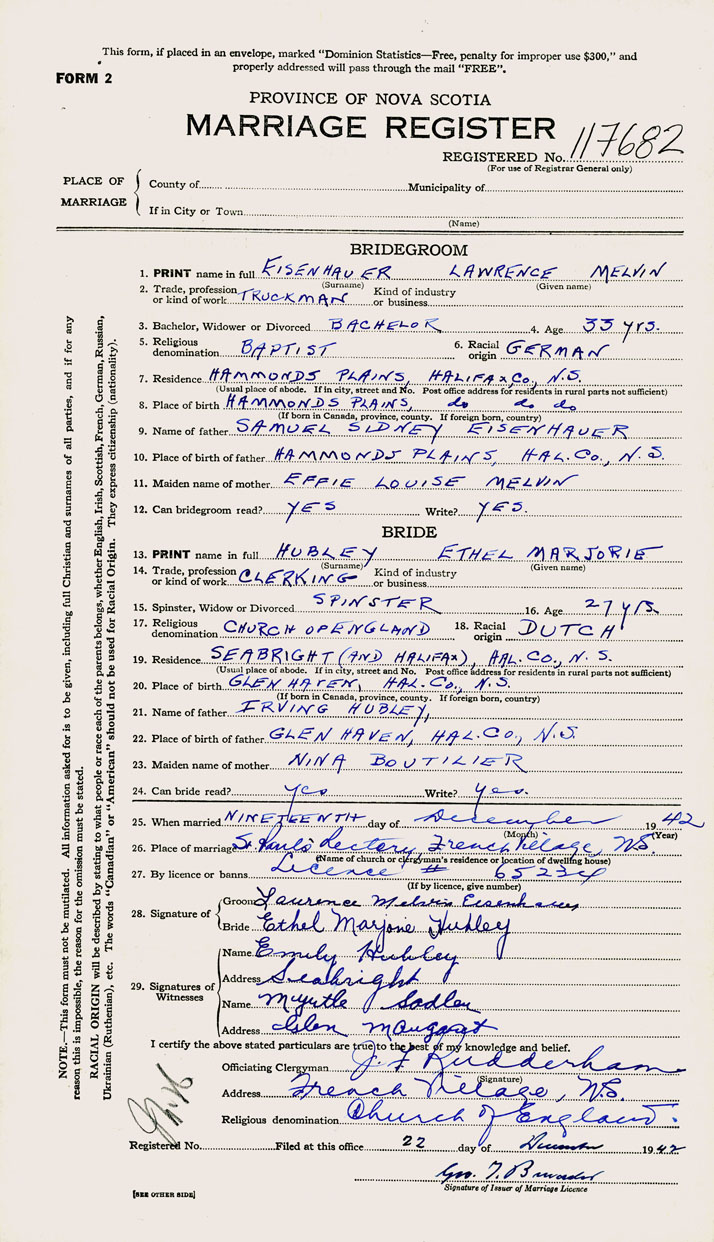 This form, if placed in an envelope, marked "Dominion Statistics—Free, penalty for improper use $300," and
properly addressed will pass through the mail "FREE".
FORM 2
PROVINCE OF NOVA SCOTIA
MARRIAGE REGISTER
REGISTERED No. 117682
(For use of Registrar General only)
PLACE OF MARRIAGE
County of Municipality of
If in City or Town
(Name)
BRIDEGROOM
1. PRINT name in full EISENHAUER LAWRENCE MELVIN
(Surname) (Given name)
2. Trade, profession or kind of work TRUCKMAN Kind of industry or business
3. Bachelor, Widower or Divorced BACHELOR 4. Age 33 yrs.
5. Religious denomination BAPTIST 6. Racial origin GERMAN
7. Residence HAMMONDS PLAINS, HALIFAX, Co., N.S.
(Usual place of abode. If in city, street and No. Post office address for residents in rural parts not sufficient)
8. Place of birth HAMMONDS PLAINS, do do do
(If born in Canada, province, county. If foreign born, country)
9. Name of father SAMUEL SIDNEY EISENHAUER
10. Place of birth of father HAMMONDS PLAINS, HAL. Co., N.S.
11. Maiden name of mother EFFIE LOUISE MELVIN
12. Can bridegroom read? YES Write? YES.
BRIDE
13. PRINT name in full HUBLEY ETHEL MARJORIE
(Surname) (Given name)
14. Trade, profession or kind of work CLERKING Kind of industry or business
15. Spinster, Widow or Divorced SPINSTER 16. Age 27 yrs
17. Religious denomination CHURCH OF ENGLAND 18. Racial origin DUTCH
19. Residence SEABRIGHT (AND HALIFAX), HAL. Co., N.S.
(Usual place of abode. If in city, street and No. Post office address for residents in rural parts not sufficient)
20. Place of birth GLEN HAVEN, HAL. Co., N.S.
(If born in Canada, province, county. If foreign born, country)
21. Name of father IRVING HUBLEY,
22. Place of birth of father GLEN HAVEN, HAL. Co., N.S.
23. Maiden name of mother NINA BOUTILIER
24. Can bride read? yes Write? yes.
25. When married NINETEENTH day of December 1942
(Month) (Year)
26. Place of marriage St. Paul's Rectory, French Village, N.S.
(Name of church or clergyman's residence or location of dwelling house)
27. By licence or banns Licence # 65234
(If by licence, give number)
28. Signature of
Groom Laurence Melvin Eisenhauer
Bride Ethel Marjorie Hubley
29. Signatures of Witnesses
Name Emily Hubley
Address Seabright
Name Myrtle Sadler
Address Glen Margaret
I certify the above stated particulars are true to the best of my knowledge and belief.
Officiating Clergyman J. F. Rudderham
(Signature)
Address French Village, N.S.
Religious denomination Church of England.
Registered No. Filed at this office 22 day of December 1942
Signature of Issuer of Marriage Licence
[SEE OTHER SIDE]
NOTE.—This form must not be mutilated. All information asked for is to be given, including full Christian and surnames of all parties, and if for any
reason this is impossible, the reason for the omission must be stated.
RACIAL ORIGIN will be described by stating to what people or race each of the parents belongs, whether English, Irish, Scottish, French, German, Russian,
Ukrainian (Ruthenian), etc. The words "Canadian" or "American" should not be used for Racial Origin. They express citizenship (nationality).